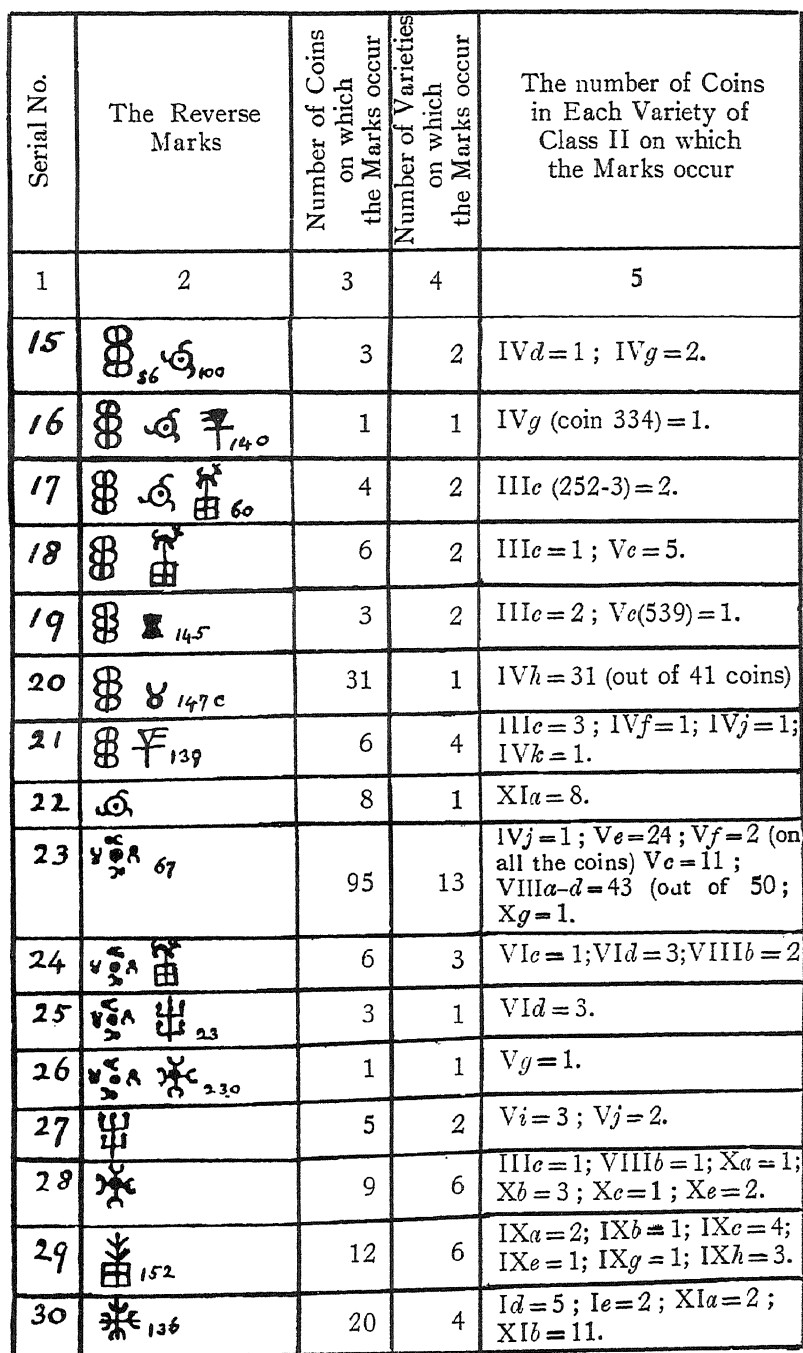 Serial No.
The Reverse
Marks
Number of Coins
on which
the Marks occur
Number of Varieties
on which
the Marks occur
The number of Coins
in Each Variety of
Class II on which
the Marks occur
1 2 3 4 5
15 56 100 3 2 IVd=1 ; IVg=2.
16 140 1 1 IVg (coin 334)=1.
17 60 4 2 IIIc (252-3)=2.
18 6 2 IIIc=1 ; Vc=5.
19 145 3 2 IIIc=2 ; Vc(539)=1.
20 147c 31 1 IVh=31 (out of 41 coins)
21 139 6 4 IIIc=3 ; IVf=1; IVj=1;
IVk=1.
22 8 1 XIa=8.
23 67 95 13 IVj=1 ; Ve=24 ; Vf=2 (on
all the coins) Vc=11 ;
VIIIa-d=43 (out of 50 ;
Xg=1.
24 6 3 VIc=1;VId=3;VIIIb=2
25 23 3 1 VId=3.
26 230 1 1 Vg=1.
27 5 2 Vi=3 ; Vj=2.
28 9 6 IIIc=1; VIIIb=1; Xa=1;
Xb=3 ; Xc=1 ; Xe=2.
29 152 12 6 IXa=2; IXb=1; IXc=4;
IXe=1; IXg=1; IXh=3.
30 136 20 4 Id=5 ; Ie=2 ; XIa=2 ;
XIb=11.